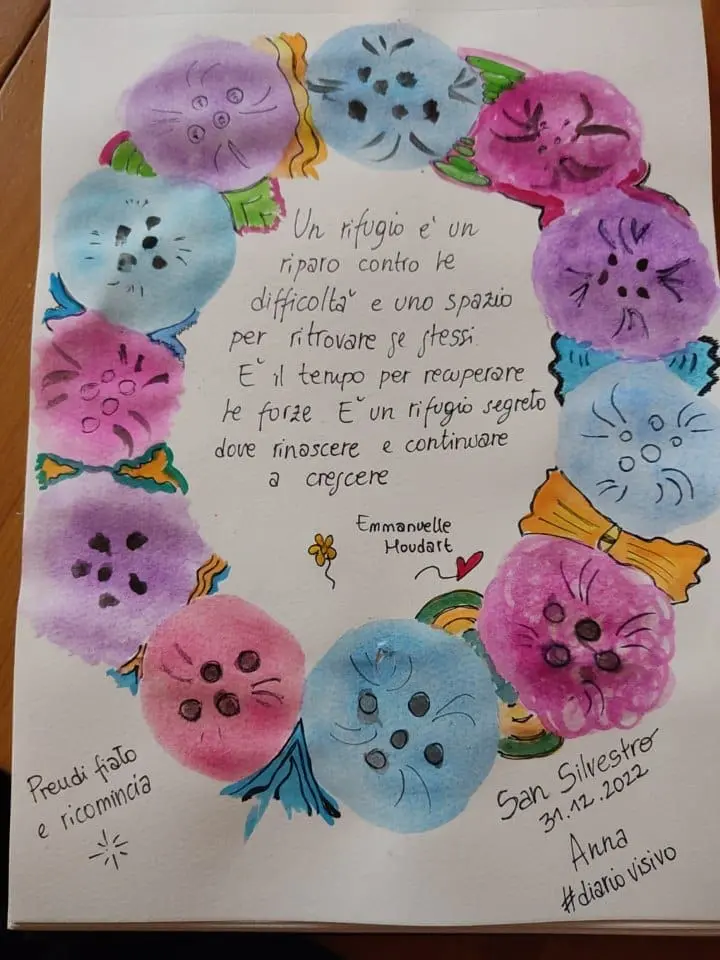 Un rifugio e' un
riparo contro le
difficoltà e uno spazio
per ritrovare se stessi.
E' il tempo per recuperare
le forze. E' un rifugio segreto
dove rinascere e continuare
a crescere
Emmanuelle
Houdart
Prendi fiato
e ricomincia
San Silvestro
31.12.2022
Anna
#diario visivo